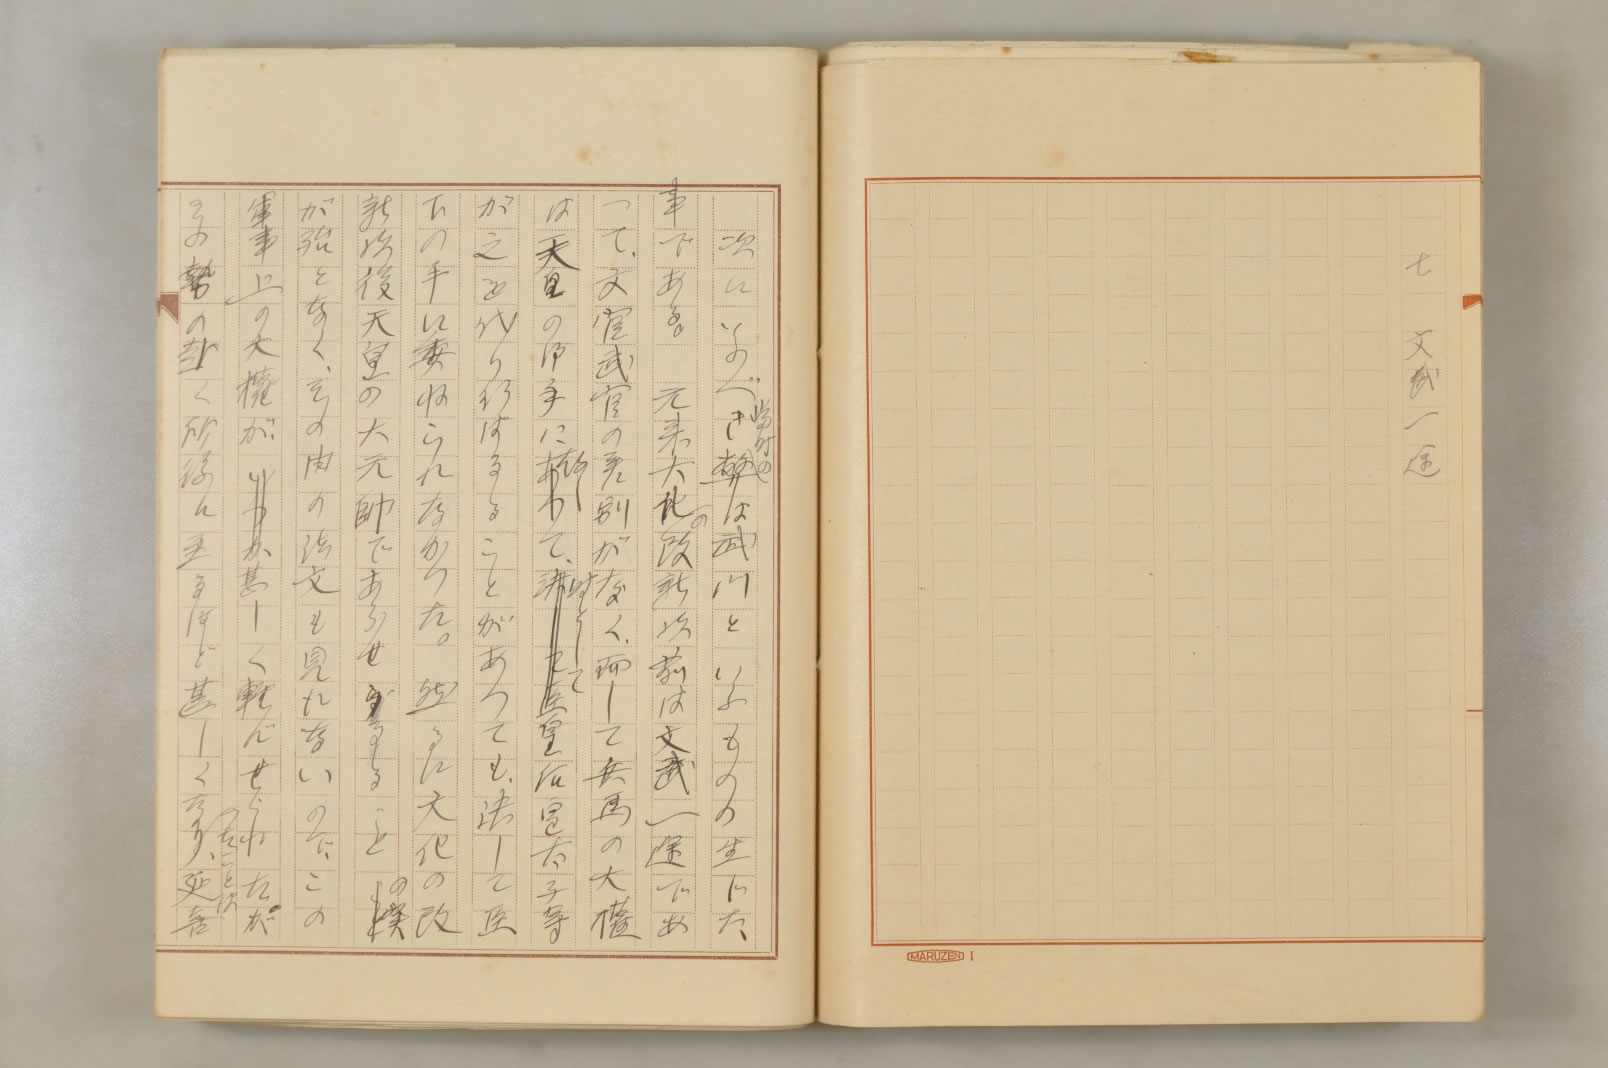 七 文武一途
MARUZEN 1
次にいふべき当時の弊は武門といふものの生じた、
事である。元来大化の改新以前は文武一途であ
つて、文官武官の差別がなく、而して兵馬の大権
は天皇の御手に 時として皇后皇太子等
が之を代り行はるることがあつても、決して臣
下の手に委ねられなかつた。然るに文化の改
新以後天皇の大元帥であらせ るること の
が殆となく、その由の法文も見れないので、この
軍事上の大権が、 甚しく軽んぜられたが
その勢の赴く
つたことは 至るほど甚しくなり、延喜